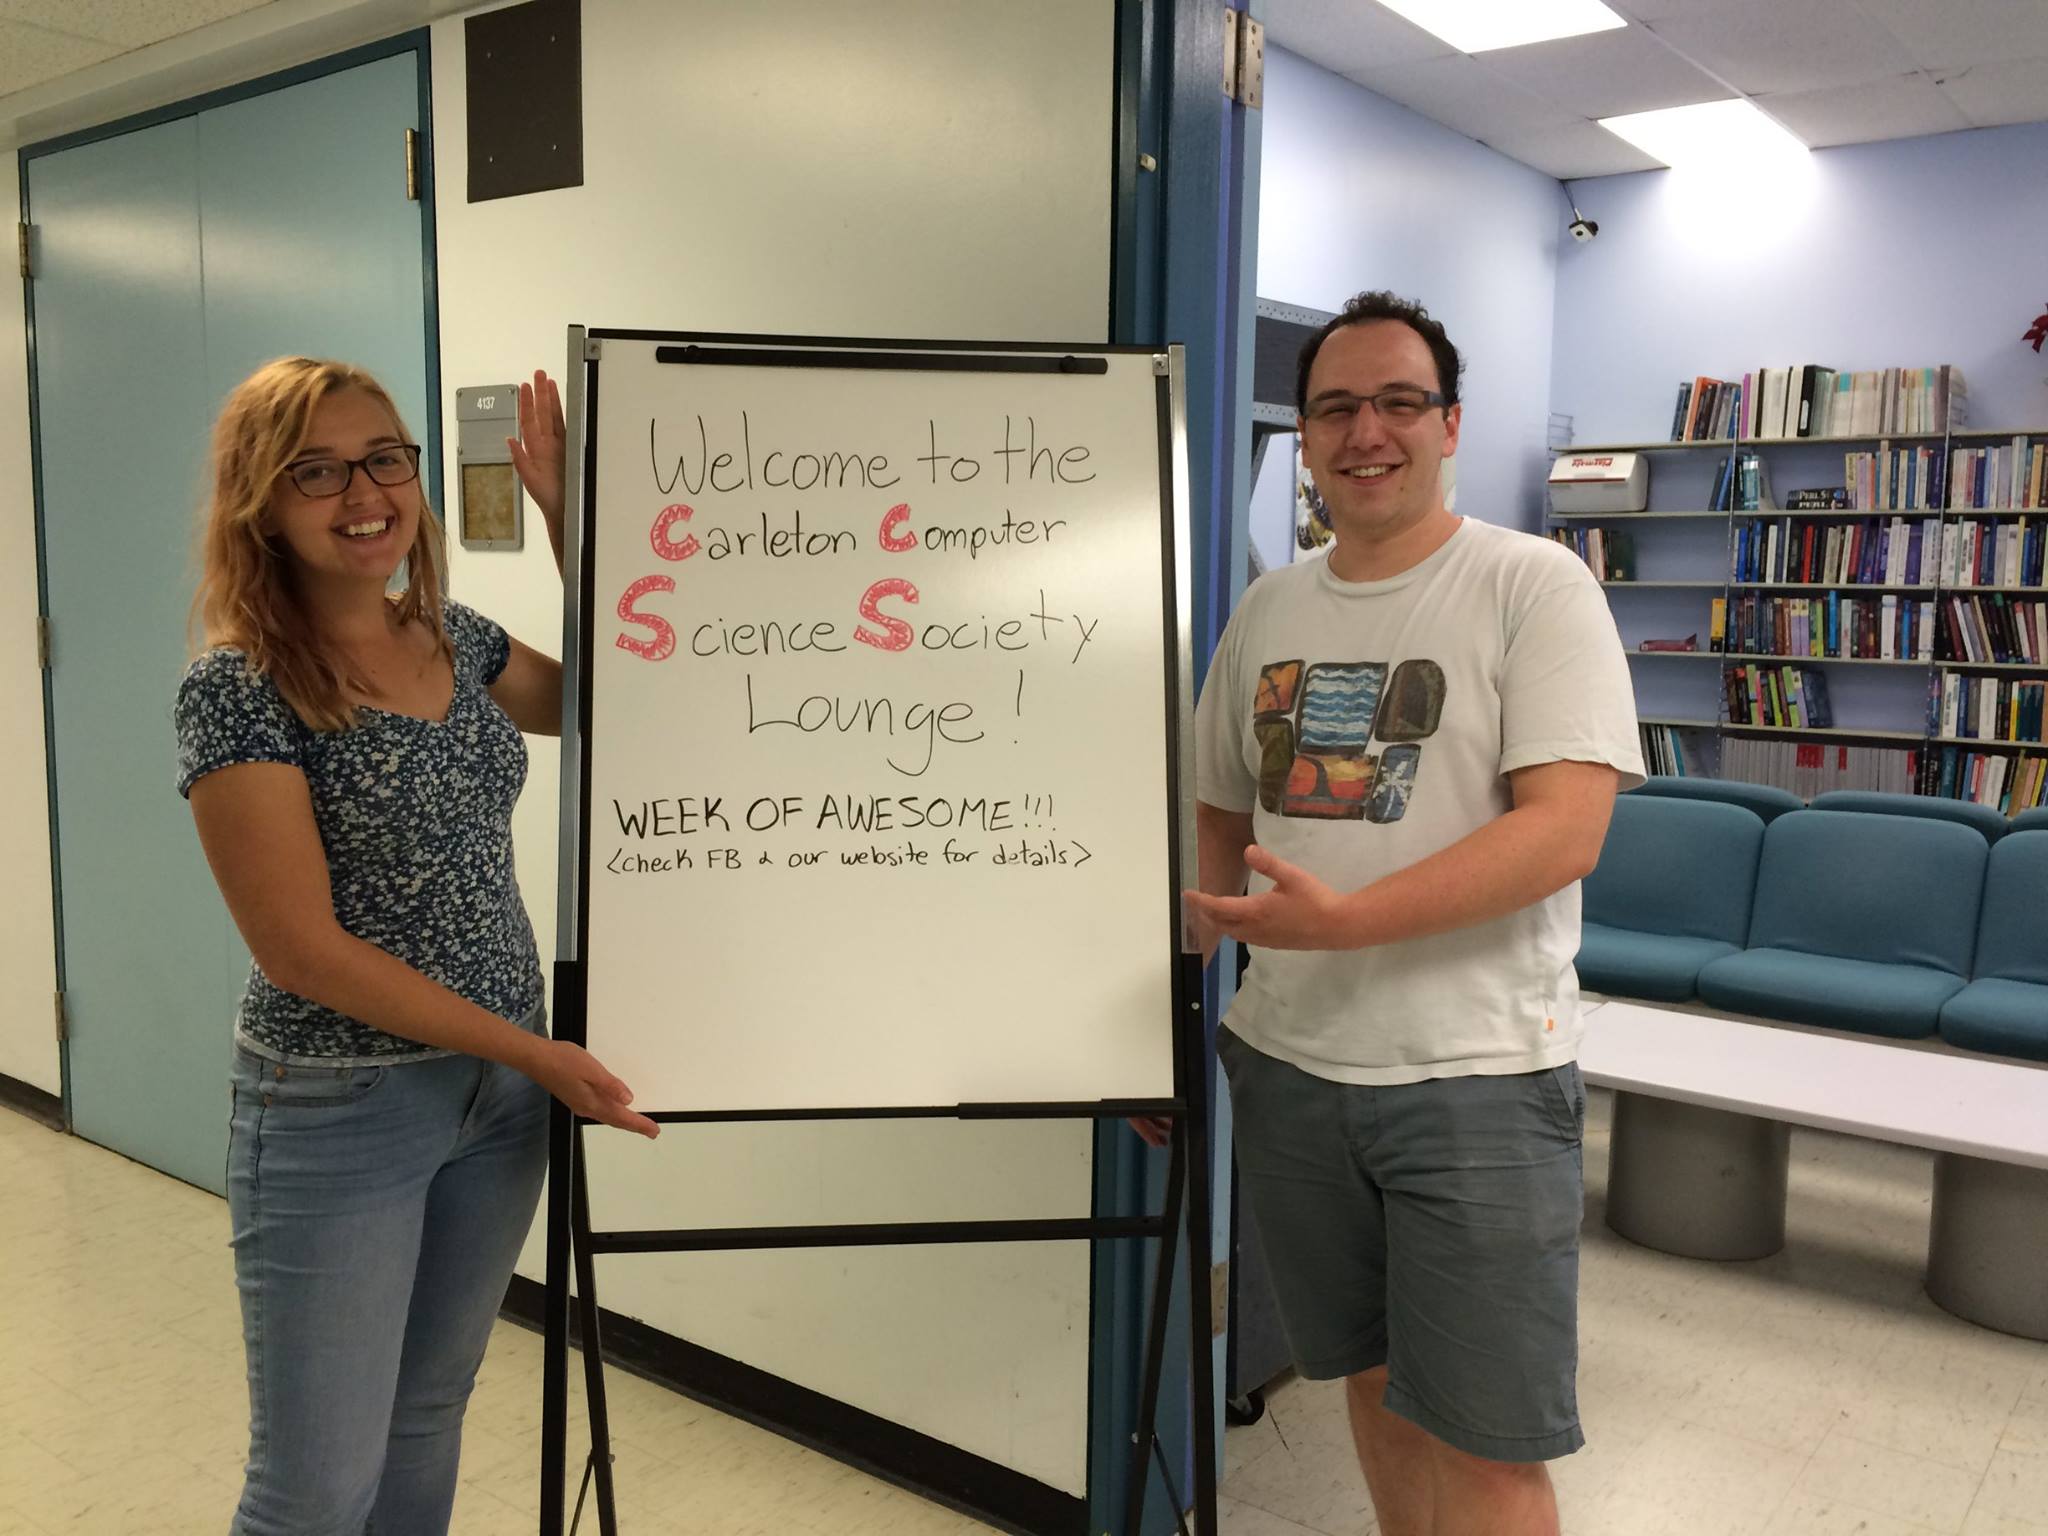 4137
Welcome to the
Carleton Computer
Science Society
Lounge!
WEEK OF AWESOME!!!
<check FB & our website for details>
PERL 5
PERL